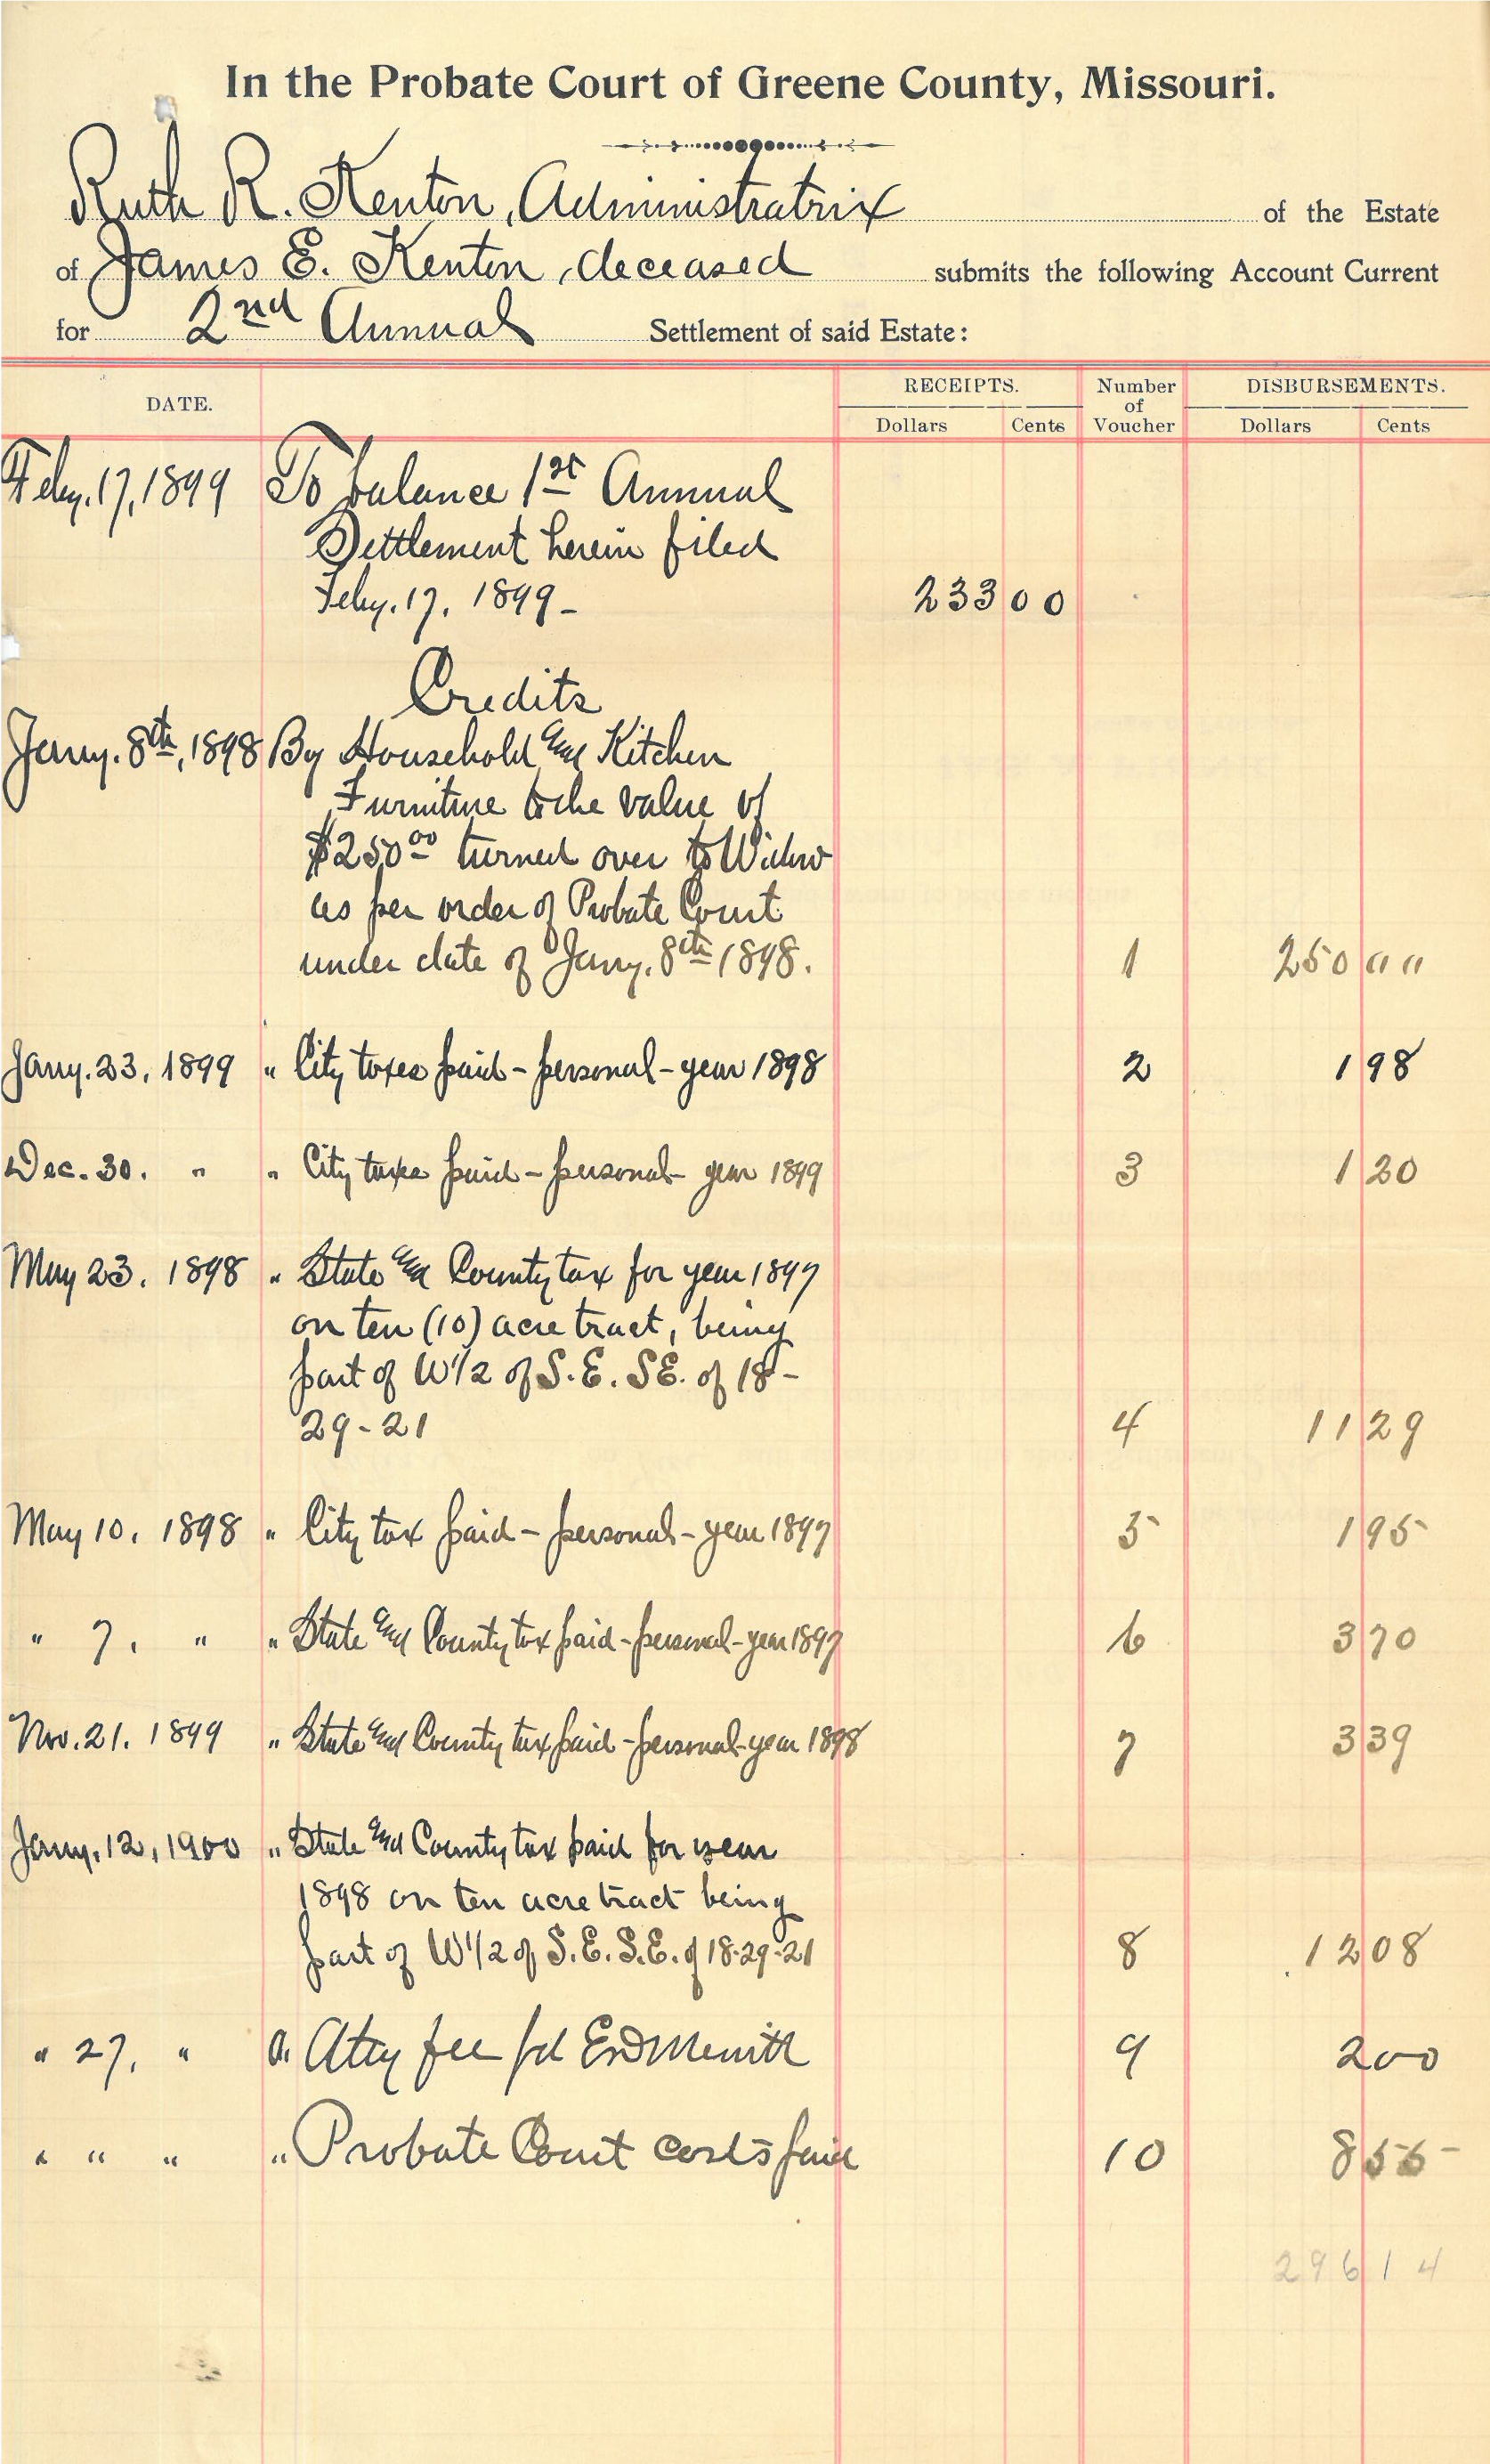 In the Probate Court of Greene County, Missouri.
Ruth R. Kenton, Administratrix of the Estate
of James E. Kenton, deceased submits the following Account Current
for 2nd Annual Settlement of said Estate:
DATE. RECEIPTS. Number of Voucher DISBURSEMENTS.
Dollars Cents Dollars Cents
Feby. 17, 1899 To balance 1st Annual
Settlement herein filed
Feby. 17, 1899 - 233 00
Credits
Jany. 8th, 1898 By Household and Kitchen
Furniture to the value of
$250 00 turned over to Widow
as per order of Probate Court
under date of Jany. 8th 1898. 1 250 00
Jany. 23, 1899 " City taxes paid - personal - year 1898 2 1 98
Dec. 30. " " City taxes paid - personal - year 1899 3 1 20
May 23, 1898 " State and County tax for year 1897
on ten (10) acre tract, being
part of W 1/2 of S. E. SE. of 18 -
29 - 21 4 11 29
May 10, 1898 " City tax paid - personal - year 1897 5 1 95
" 7. " " State and County tax paid - personal - year 1897 6 3 70
Nov. 21. 1899 " State and County tax paid - personal - year 1898 7 3 39
Jany. 12, 1900 " State and County tax paid for year
1898 on ten acre tract being
part of W 1/2 of S. E. S. E. of 18-29-21 8 12 08
" 27, " " Atty fee pd E D Merritt 9 2 00
" " " " Probate Court costs paid 10 8 55
296 14